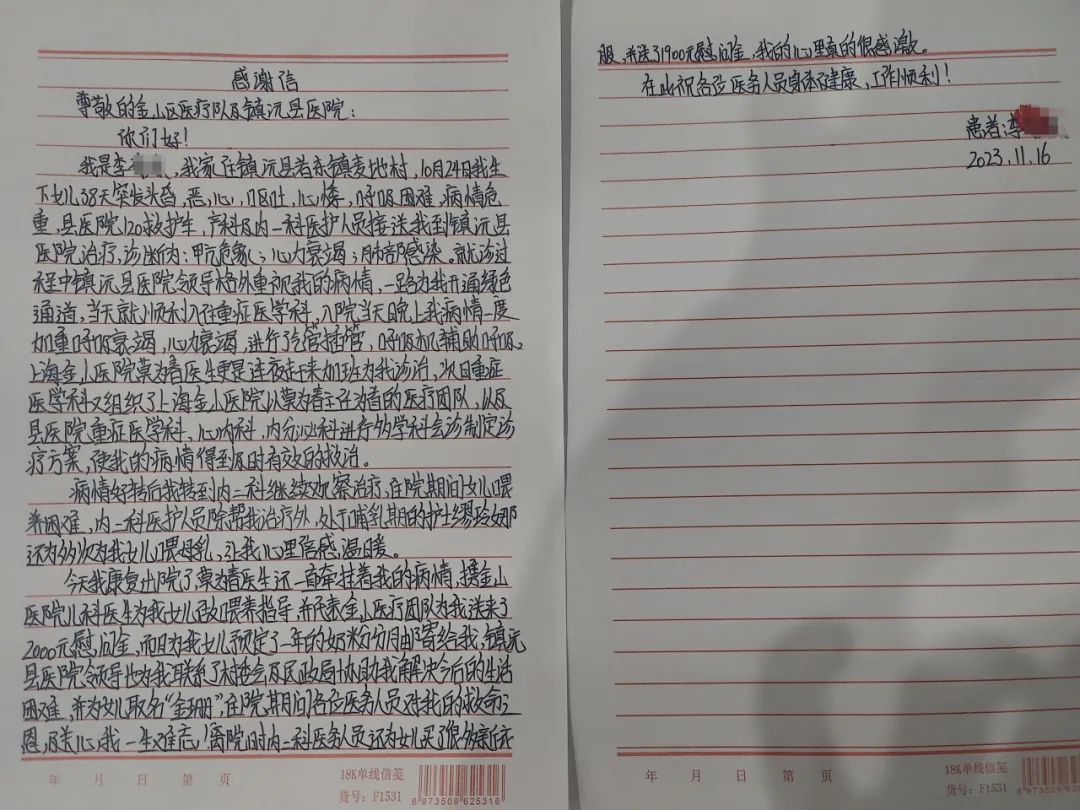 感谢信
尊敬的金山区医疗队及镇沅县医院：
你们好！
我是李，我家住镇沅县者东镇麦地村，10月24日我生
下女儿38天突发头昏，恶心，呕吐，心慌，呼吸困难，病情危
重，县医院120救护车，产科及内一科医护人员接送我到镇沅县
医院治疗，诊断为：甲亢危象；心力衰竭；肺部感染。就诊过
程中镇沅县医院领导格外重视我的病情，一路为我开通绿色
通道，当天就顺利入住重症医学科，入院当天晚上我病情一度
加重呼吸衰竭，心力衰竭，进行了气管插管，呼吸机辅助呼吸。
上海金山医院莫为春医生更是连夜赶来加班为我诊治，次日重症
医学科又组织了上海金山医院以莫为春主任为首的医疗团队，以及
县医院重症医学科、心内科，内分泌科进行多学科会诊制定诊
疗方案，使我的病情得到及时有效的救治。
病情好转后我转到内二科继续观察治疗，住院期间女儿喂
养困难，内二科医护人员除帮我治疗外，处于哺乳期的护士缪玲娜
还为多次为我女儿喂母乳，让我心里倍感温暖。
今天我康复出院了莫为春医生还一直牵挂着我的病情，携金山
医院儿科医生为我女儿做喂养指导，并代表金山医疗团队为我送来了
2000元慰问金，而且为我女儿预定了一年的奶粉分月邮寄给我，镇沅
县医院领导也为我联系了村委会及民政局协助我解决今后的生活
困难，并为女儿取名“金珊”，住院期间各位医务人员对我的救命之
恩及关心，我一生难忘！离院时内二科医务人员还为女儿买了很多新衣
年 月 日 第 页
18K单线信笺
货号：F1531
6 973509 625316
服，并送了1900元慰问金，我的心里真的很感激。
在此祝各位医务人员身体健康，工作顺利！
患者：李
2023.11.16
年 月 日 第 页
18K单线信笺
货号：F1531
6 973509 625